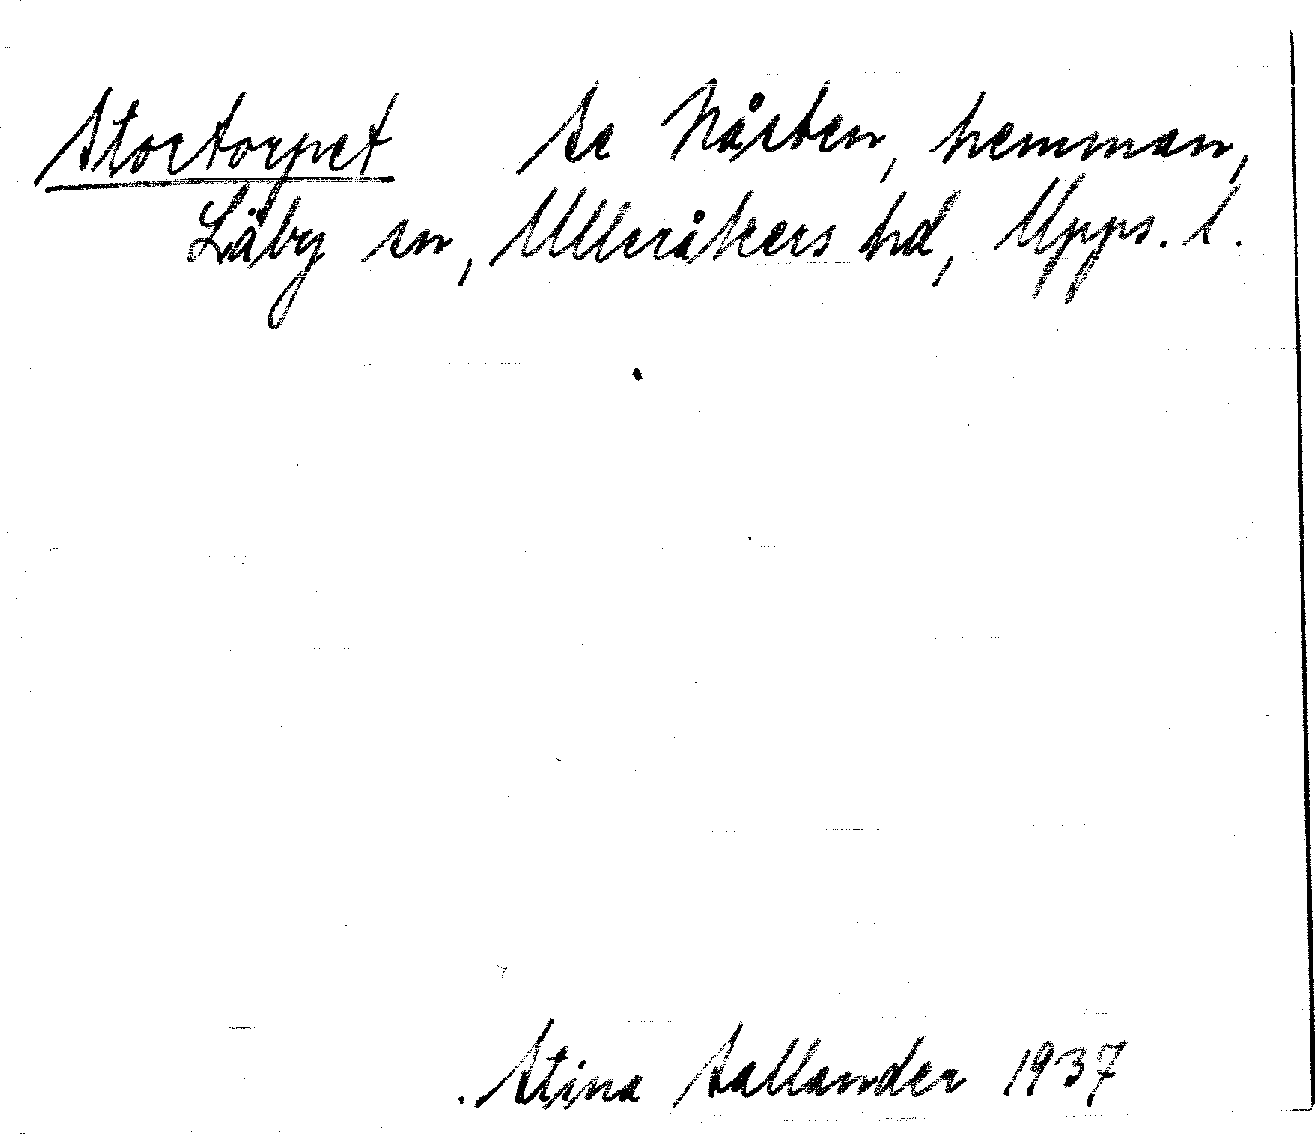 Stortorpet Se Nåsten, hemman,
Läby sn, Ulleråkers hd, Upps. l.
Stina Sallander 1937